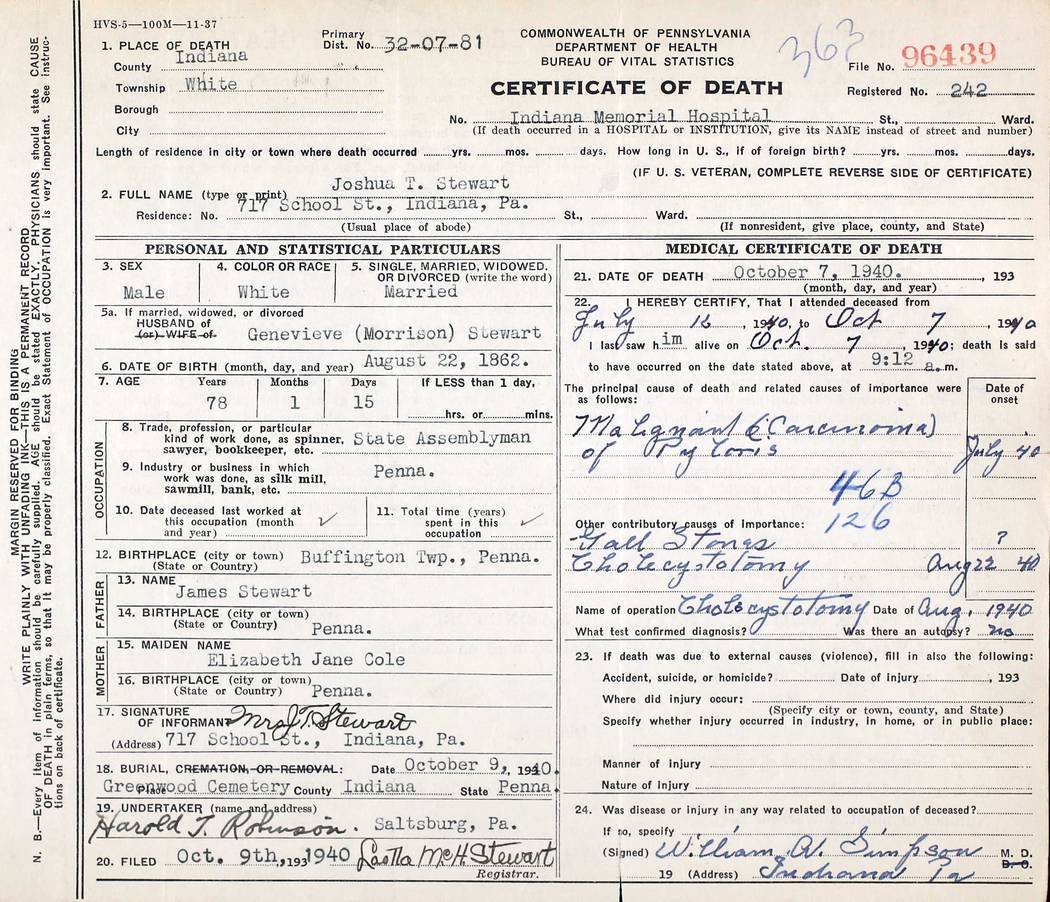 HVS-5—100M—11-37
1. PLACE OF DEATH
County Indiana
Township White
Borough
City
Primary Dist. No. 32-07-81
COMMONWEALTH OF PENNSYLVANIA
DEPARTMENT OF HEALTH
BUREAU OF VITAL STATISTICS
CERTIFICATE OF DEATH
363
File No. 96439
Registered No. 242
No. Indiana Memorial Hospital St., Ward.
(If death occurred in a HOSPITAL or INSTITUTION, give its NAME instead of street and number)
Length of residence in city or town where death occurred yrs. mos. days. How long in U. S., if of foreign birth? yrs. mos. days.
(IF U. S. VETERAN, COMPLETE REVERSE SIDE OF CERTIFICATE)
2. FULL NAME (type or print) Joshua T. Stewart
Residence: No. 717 School St., Indiana, Pa. St., Ward.
(Usual place of abode) (If nonresident, give place, county, and State)
PERSONAL AND STATISTICAL PARTICULARS
3. SEX
Male
4. COLOR OR RACE
White
5. SINGLE, MARRIED, WIDOWED, OR DIVORCED (write the word)
Married
5a. If married, widowed, or divorced
HUSBAND of
(or) WIFE of Genevieve (Morrison) Stewart
6. DATE OF BIRTH (month, day, and year) August 22, 1862.
7. AGE Years Months Days If LESS than 1 day,
78 1 15 hrs. or mins.
OCCUPATION
8. Trade, profession, or particular
kind of work done, as spinner, State Assemblyman
sawyer, bookkeeper, etc.
9. Industry or business in which
work was done, as silk mill, Penna.
sawmill, bank, etc.
10. Date deceased last worked at
this occupation (month ✓
and year)
11. Total time (years)
spent in this ✓
occupation
12. BIRTHPLACE (city or town) Buffington Twp., Penna.
(State or Country)
FATHER
13. NAME
James Stewart
14. BIRTHPLACE (city or town)
(State or Country) Penna.
MOTHER
15. MAIDEN NAME
Elizabeth Jane Cole
16. BIRTHPLACE (city or town)
(State or Country) Penna.
17. SIGNATURE
OF INFORMANT Mrs J. T. Stewart
(Address) 717 School St., Indiana, Pa.
18. BURIAL, CREMATION, OR REMOVAL: Date October 9, 1940.
Place Greenwood Cemetery County Indiana State Penna.
19. UNDERTAKER (name and address)
Harold T. Robinson. Saltsburg, Pa.
20. FILED Oct. 9th, 193 1940 McH Stewart
Registrar.
MEDICAL CERTIFICATE OF DEATH
21. DATE OF DEATH October 7, 1940. , 193
(month, day, and year)
22. I HEREBY CERTIFY, That I attended deceased from
July , 1940, to Oct 7 , 1940
I last saw him alive on Oct. 7 , 1940; death is said
to have occurred on the date stated above, at 9:12 a.m.
The principal cause of death and related causes of importance were as follows:
Date of onset
Malignant (Carcinoma)
of Pyloris July 40
46B
126
Other contributory causes of importance:
Gall Stones ?
Cholecystotomy Aug 22 40
Name of operation Cholecystotomy Date of Aug. 1940
What test confirmed diagnosis? Was there an autopsy? no
23. If death was due to external causes (violence), fill in also the following:
Accident, suicide, or homicide? Date of injury , 193
Where did injury occur:
(Specify city or town, county, and State)
Specify whether injury occurred in industry, in home, or in public place:
Manner of injury
Nature of injury
24. Was disease or injury in any way related to occupation of deceased?
If so, specify
(Signed) William A. Simpson M. D.
D. O.
19 (Address) Indiana Pa
MARGIN RESERVED FOR BINDING
WRITE PLAINLY WITH UNFADING INK—THIS IS A PERMANENT RECORD
N. B.—Every item of information should be carefully supplied. AGE should be stated EXACTLY. PHYSICIANS should state CAUSE
OF DEATH in plain terms, so that it may be properly classified. Exact Statement of OCCUPATION is very important. See instruc-
tions on back of certificate.